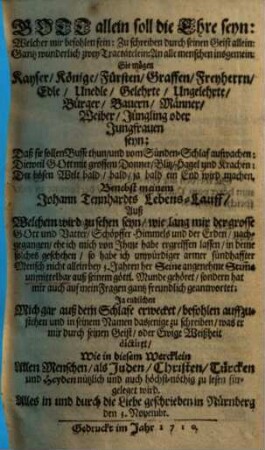 GOTT allein soll die Ehre seyn:
Welcher mir befohlen fein: Zu schreiben durch seinen Geist allein:
Gantz wunderlich zwey Tractätelein: An alle menschen insgemein:
Sie mögen
Kayser/ Könige/ Fürsten/ Graffen/ Freyherrn/
Edle/ Unedle/ Gelehrte/ Ungelehrte/
Bürger/ Bauern/ Männer/
Weiber/ Jüngling oder
Jungfrauen
seyn:
Daß sie sollen Busse thun/ und vom Sünden-Schlaf aufwachen:
Dieweil GOtt mit grossem Donner/ Blitz/ Hagel und Krachen:
Der bösen Welt bald/ bald/ ja bald ein End wird machen,
Benebst meinen
Johann Tennhardts Lebens-Lauff/
Auß
Welchem wird zu sehen seyn/ wie lang mir der grosse
GOtt und Vatter/ Schöpfer Himmels und der Erden/ nach-
gegangen/ ehe ich mich von Ihme habe ergreiffen lassen/ in deme
solches geschehen/ so habe ich unwürdiger armer sündhaffter
Mensch nicht alleine bey 5. Jahren her Seine angenehme Stimm
unmittelbar auß seinem göttl. Munde gehöret/ sondern hat
mir auch auf mein Fragen gantz freundlich geantwortet:
Ja endlichen
Mich gar auß dem Schlafe erwecket/ befohlen aufzu-
stehen und in seinem Namen dasjenige zu schreiben/ was er
mir durch seinen Geist/ oder Ewige Weißheit
dictirt/
Wie in diesem Wercklein
Allen Menschen/ als Juden/ Christen/ Türcken
und Heyden nützlich und auch höchst-nöthig zu lesen für-
geleget wird.
Alles in und durch die Liebe geschrieben in Nürnberg
den 5. Novembr.
Gedruckt im Jahr 1710.